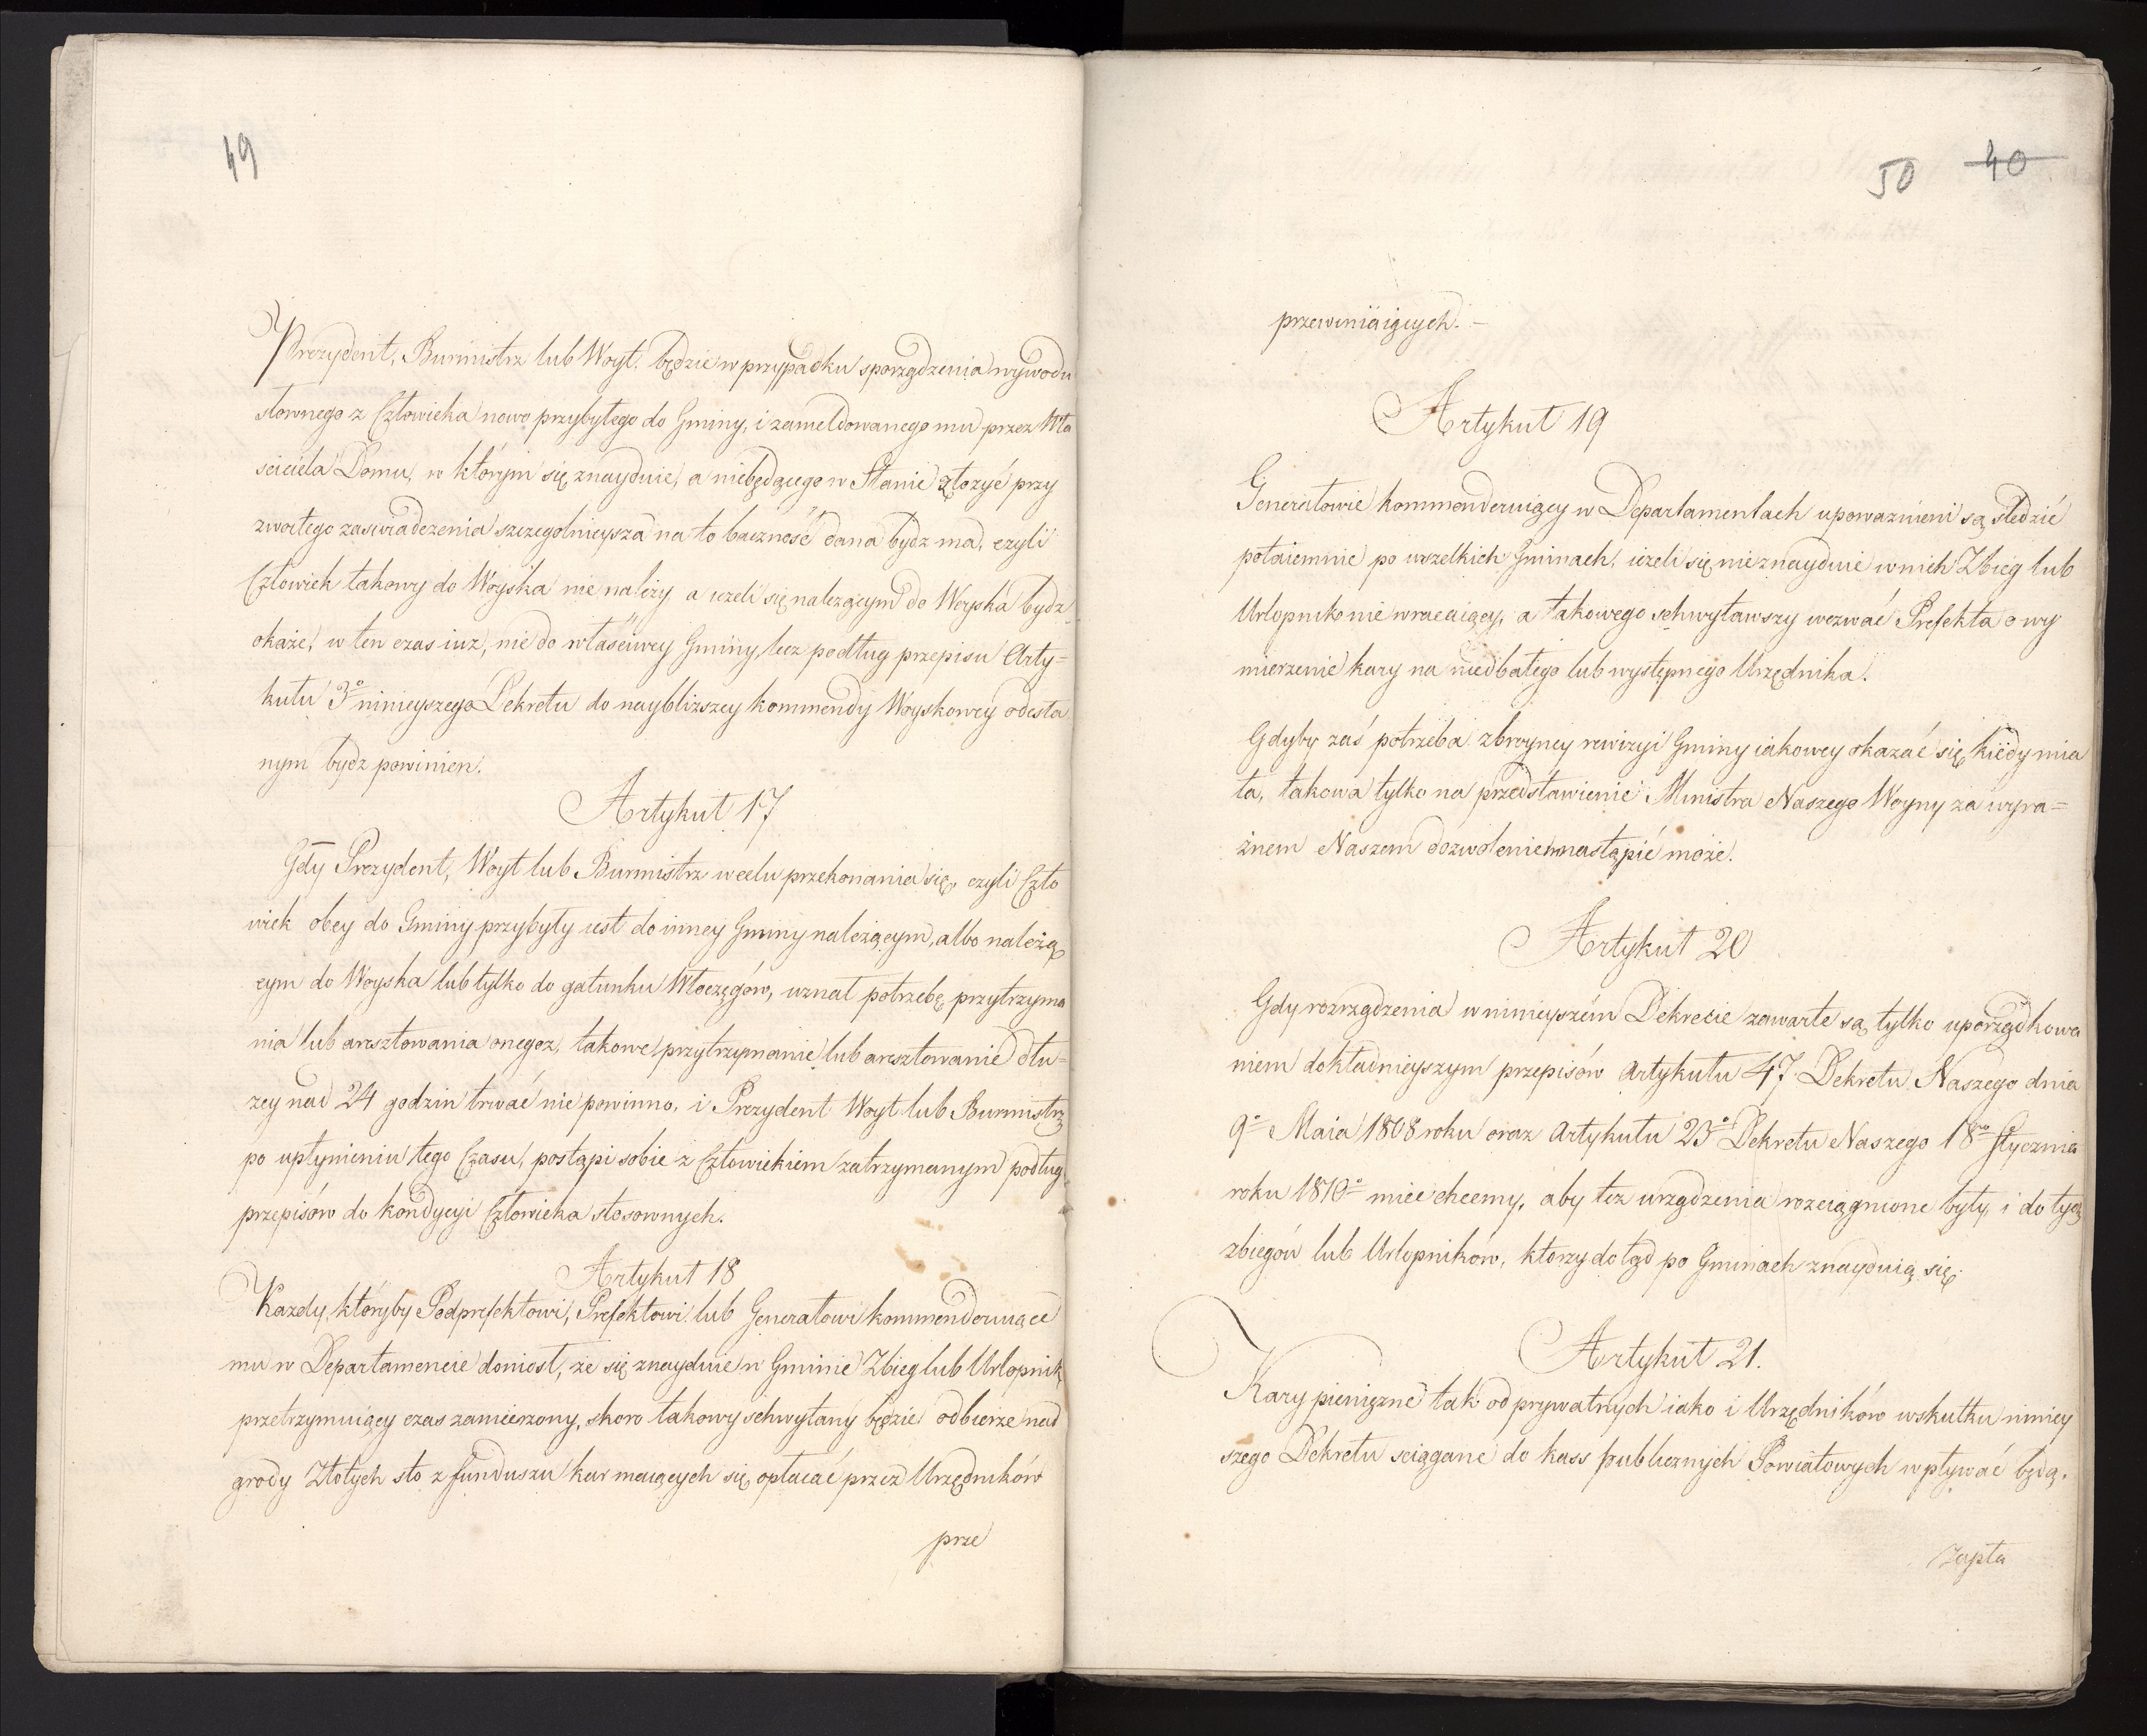 49
Prezydent, Burmistrz lub Woyt. będzie w przypadku sporządzenia wywodu
słownego z Człowieka nowo przybyłego do Gminy, i zameldowanego mu przez Wła
sciciela Domu, w którym się znayduie, a niebędącego w Stanie złożyć przy
zwoitego zaswiadczenia szczegolnieysza na to baczność dana bydz ma, czyli
Człowiek takowy do Woyska nie należy, a ieżeli się należącym do Woyska bydz
okaże, w ten czas iuz, nie do właściwey Gminy, lecz podług przepisu Arty=
kułu 3º ninieyszego Dekretu do naybliższey kommendy Woyskowey odesła
nym bydz powinien.
Artykuł 17
Gdy Prezydent, Woyt lub Burmistrz w celu przekonania się, czyli Czło
wiek obcy do Gminy przybyły iest do inney Gminy należącym, albo należą
cym do Woyska lub tylko do gatunku Włoczęgów, uznał potrzebę przytrzyma
nia lub aresztowania onegoz, takowe przytrzymanie lub aresztowanie dłu=
zey nad 24 godzin trwać nie powinno, i Prezydent Woyt lub Burmistrz
po upłynieniu tego Czasu, postąpi sobie z Człowiekiem zatrzymanym podług
przepisów do kondycyi Człowieka stosownych.
Artykuł 18
Kazdy, któryby Podprefektowi, Prefektowi lub Generałowi kommenderuiące
mu w Departamencie doniosł, że się znayduie w Gminie Zbieg lub Urlopnik
przetrzymuiący czas zamierzony, skoro takowy schwytany będzie odbierze nad
grody Złotych sto z funduszu kar maiących się opłacać przez Urzędników
prze
50 40
przewiniaiących. –
Artykuł 19
Generałowie kommenderuiący w Departamentach upoważnieni są sledzić
potaiemnie po wszelkich Gminach, ieżeli się nie znayduie w nich Zbieg lub
Urlopnik nie wracaiący, a takowego schwytawszy wezwać Prefekta o wy
mierzenie kary na niedbałego lub występnego Urzędnika.
Gdyby zaś potrzeba zbroyney rewizyi Gminy iakowey okazać się kiedy mia
ła, takowa tylko na przedstawienie Ministra Naszego Woyny za wyra=
źnem Naszem dozwoleniem nastąpić może.
Artykuł 20
Gdy rozrządzenia w ninieyszém Dekrecie zawarte są tylko uporządkowa
niem dokładnieyszym przepisów Artykułu 47. Dekretu Naszego dnia
9º Maia 1808 roku oraz Artykułu 23º Dekretu Naszego 18go Stycznia
roku 1810º miec chcemy, aby tez urządzenia rozciągnione były, i do tych
zbiegów lub Urlopników, ktorzy dotąd po Gminach znayduią się.
Artykuł 21.
Kary pieniężne tak od prywatnych iako i Urzędników wskutku niniey
szego Dekretu sciągane do kass publicznych Powiatowych wpływać będą.
Zapła